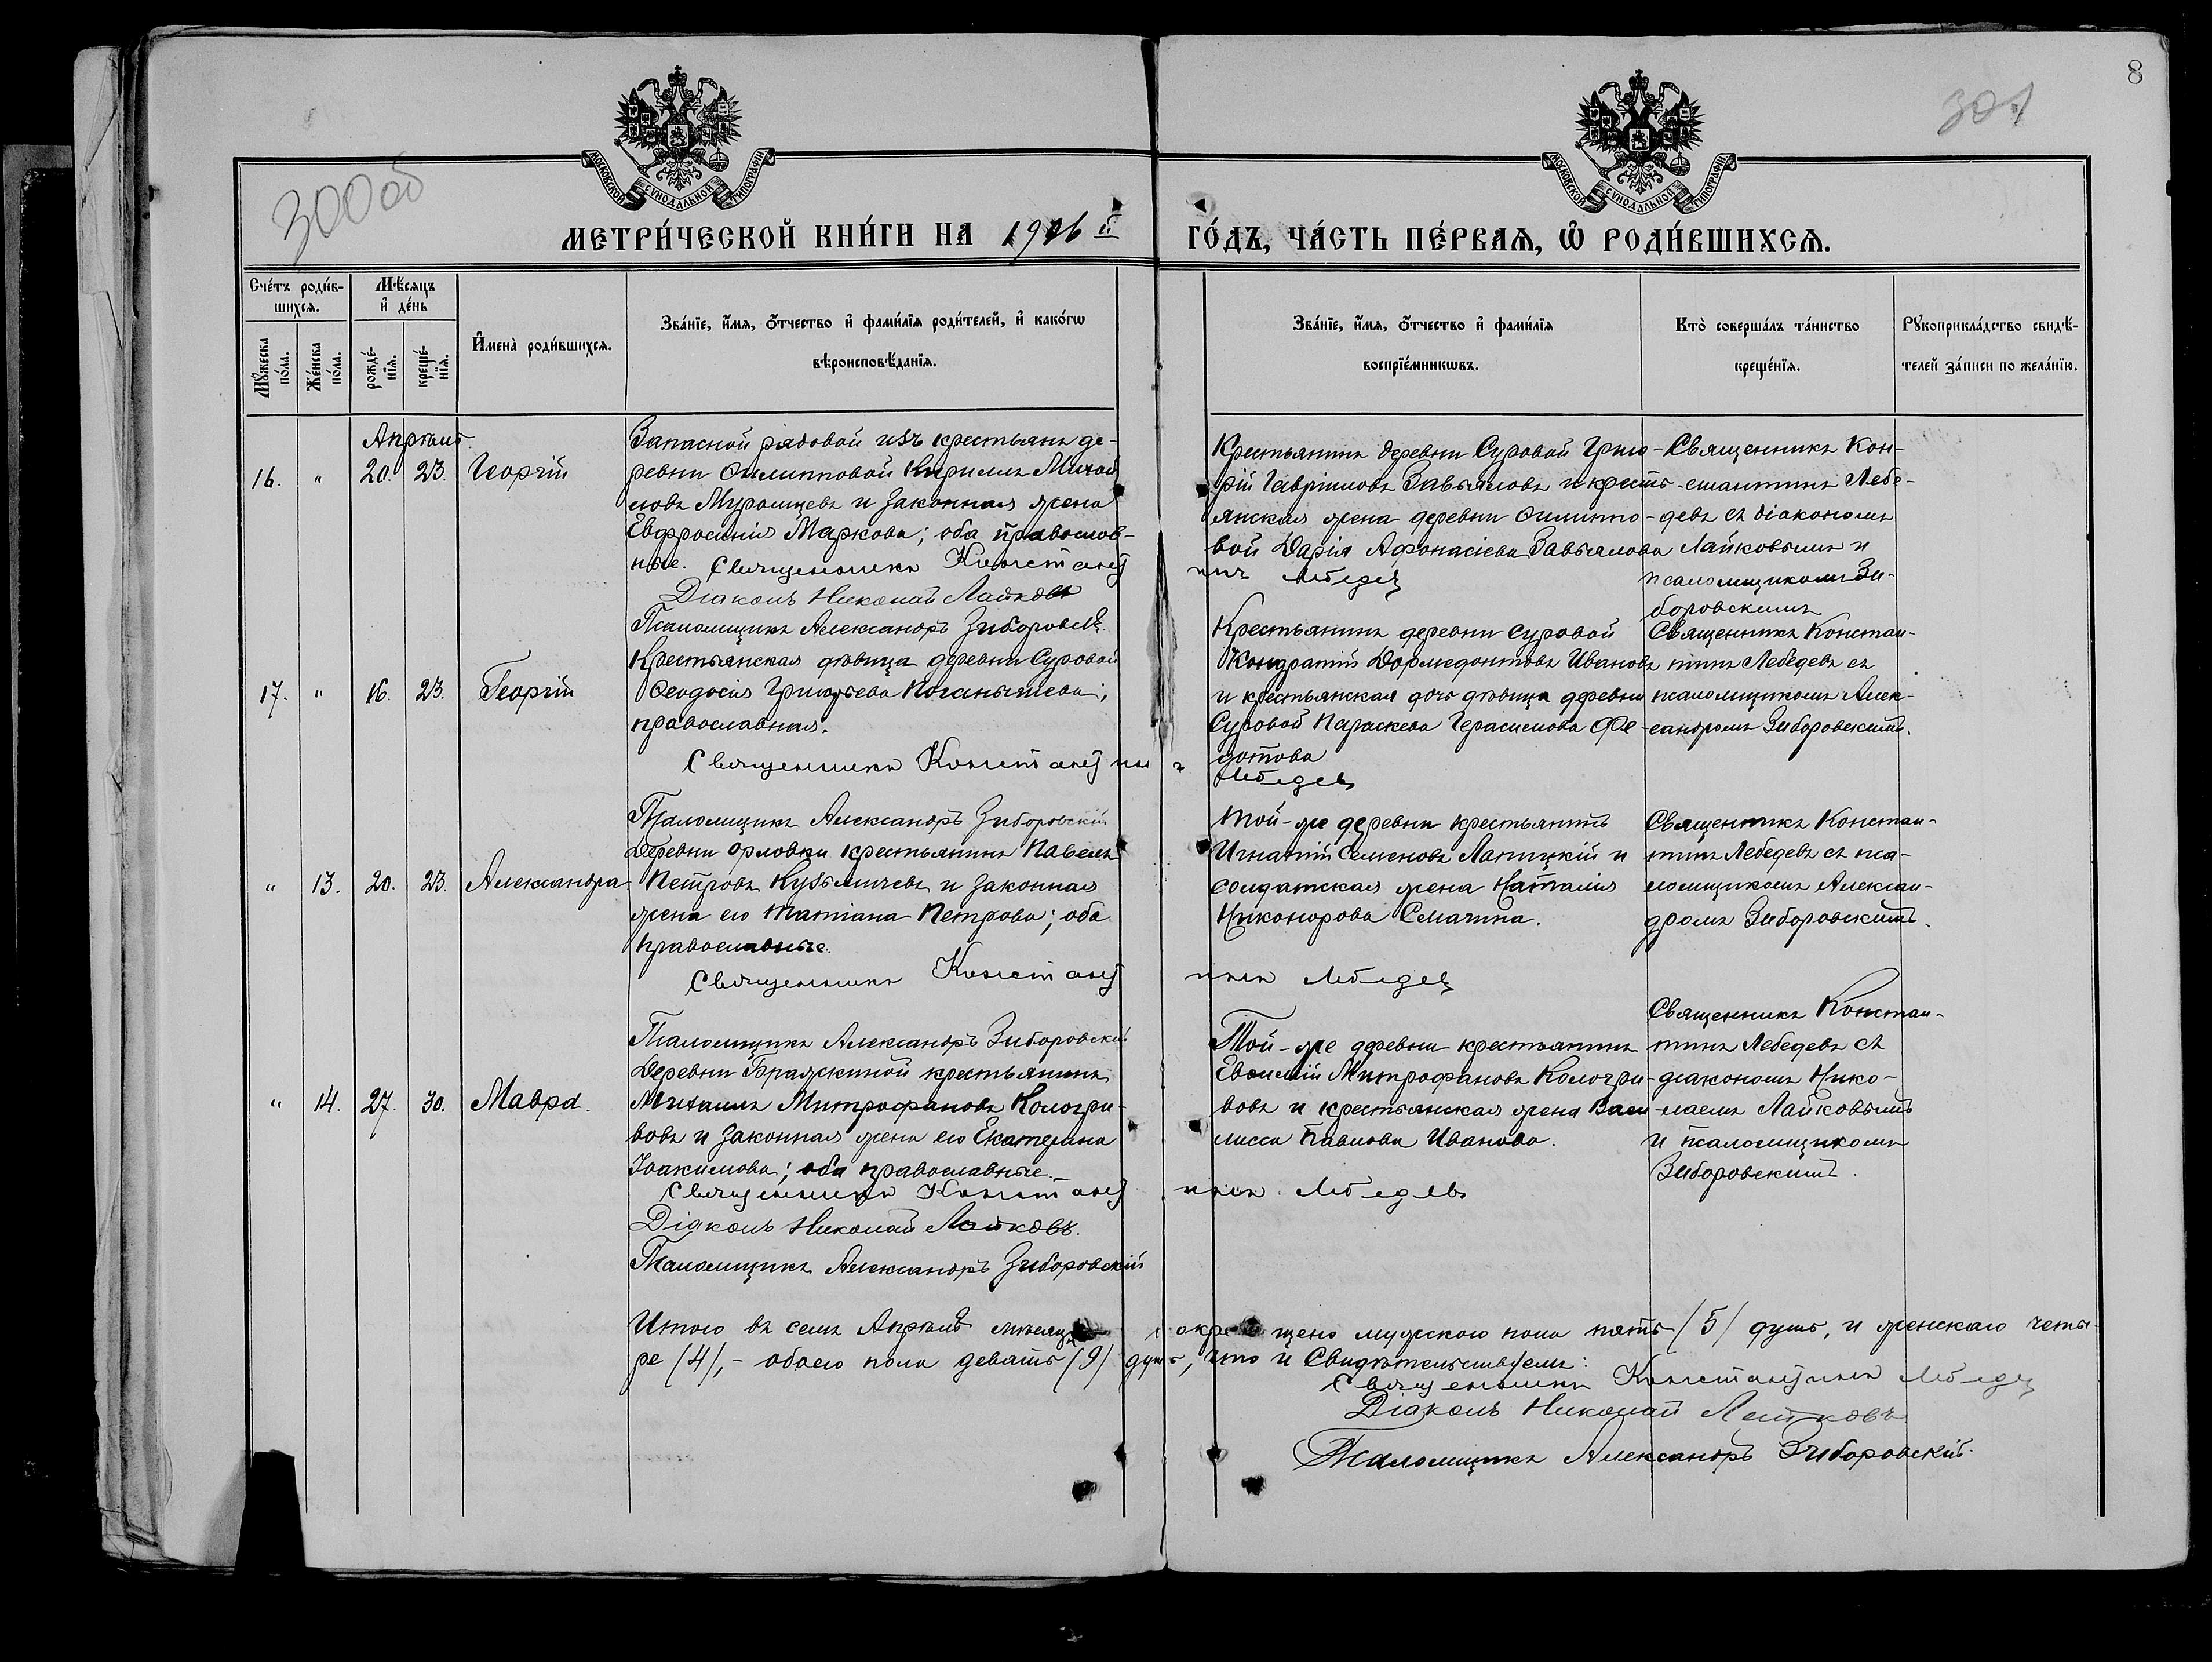 8
301
300 об
МОСКОВСКОЙ СѴНОДАЛЬНОЙ ТИПОГРАФІИ
МОСКОВСКОЙ СѴНОДАЛЬНОЙ ТИПОГРАФІИ
МЕТРИ́ЧЕСКОЙ КНИ́ГИ НА 1916 й ГО́ДЪ, ЧА́СТЬ ПЕ́РВАѦ, Ѽ РОДИ́ВШИХСѦ.
Сче́тъ роди́в-
шихсѧ.
Мѣ́сѧцъ
и҆ де́нь
Мꙋ́жеска
по́ла.
Же́нска
по́ла.
рожде́-
нїѧ.
креще́-
нїѧ.
И҆мена̀ роди́вшихсѧ.
Зва́нїе, и҆́мѧ, ѻ҆́тчество и҆ фами́лїѧ роди́телей, и҆ како́гѡ
вѣроисповѣ́данїѧ.
Зва́нїе, и҆́мѧ, ѻ҆́тчество и҆ фами́лїѧ
воспрїе́мникѡвъ.
Кто̀ соверша́лъ та́инство
креще́нїѧ.
Рꙋкоприкла́дство свидѣ́-
телей за́писи по жела́нїю.
Апрѣль
16. " 20. 23. Георгій
Запасной рядовой изъ крестьянъ де-
ревни Филипповой Кириллъ Михай
ловъ Муромцевъ и законная жена
Евфросинія Маркова; оба православ-
ные. Священникъ Константинъ Лебедев
Діаконъ Николай Лайковъ
Псаломщикъ Александръ Зиборовск
Крестьянинъ деревни Суровой Григо-
рій Гавріиловъ Завьяловъ и кресть-
янская жена деревни Филиппо-
вой Дарія Афонасіева Завьялова
Священникъ Кон-
стантинъ Лебе-
девъ съ діакономъ
Лайковымъ и
псаломщикомъ Зи-
боровскимъ
17. " 16. 23. Георгій
Крестьянская дѣвица деревни Суровой
Феодосія Григорьева Поганышева;
православная.
Священникъ Константинъ Лебедевъ
Псаломщикъ Александръ Зиборовскій
Крестьянинъ деревни Суровой
Кондратій Дормедонтовъ Ивановъ
и крестьянская дочь дѣвица деревни
Суровой Параскева Герасимова Фе-
дотова
Священникъ Констан-
тинъ Лебедевъ съ
псаломщикомъ Алек-
сандромъ Зиборовскимъ.
" 13. 20. 23. Александра
Деревни Орловки крестьянинъ Павелъ
Петровъ Кузьмичевъ и законная
жена его Татіана Петрова; оба
православные.
Священникъ Константинъ Лебедев
Псаломщикъ Александръ Зиборовскі
Той-же деревни крестьянинъ
Игнатій Семеновъ Лапицкій и
солдатская жена Наталія
Никонорова Семагина.
Священникъ Констан-
тинъ Лебедевъ съ пса-
ломщикомъ Алексан-
дромъ Зиборовскимъ.
" 14. 27. 30. Мавра.
Деревни Бражкиной крестьянинъ
Михаилъ Митрофановъ Кологри-
вовъ и законная жена его Екатерина
Іоакимова; оба православные.
Священникъ Константинъ Лебедевъ
Діаконъ Николай Лайковъ.
Псаломщикъ Александръ Зиборовскій
Той-же деревни крестьянинъ
Евѳимій Митрофановъ Кологри-
вовъ и крестьянская жена Васи-
лисса Павлова Иванова.
Священникъ Констан-
тинъ Лебедевъ съ
діакономъ Нико-
лаемъ Лайковымъ
и псаломщикомъ
Зиборовскимъ.
Итого въ семъ Апрѣлѣ мѣсяцѣ окрещено мужского пола пять /5/ душъ, и женскаго четы-
ре /4/, - обоего пола девять /9/ душъ, что и Свидѣтельствуемъ:
Священникъ Константинъ Лебедев
Діаконъ Николай Лайковъ
Псаломщикъ Александръ Зиборовскій.